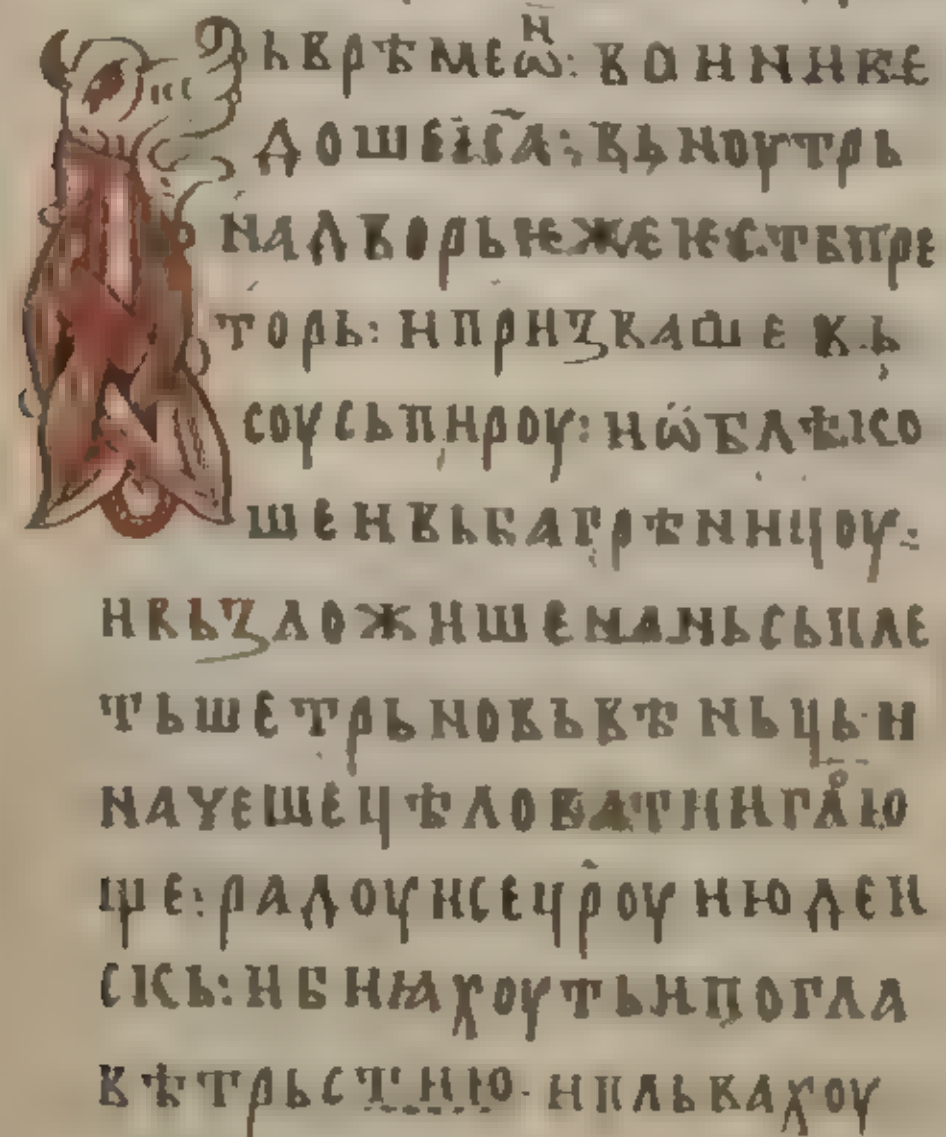 Ьврѣмеѡ҃н: воинике
дошеіс҃а: вьноутрь
надворьѥжеѥстьпре
торь: ипризвашек.ь
соусьпироу: иѡблѣко
шеивьбагрѣницоу:
ивьзложишенаньсьпле
тьшетрьновьвѣньць·и
наꙋешецѣловатиигл҃аю
ще: радоуисец҃роуиюдеи
скь: ибиꙗхоутьипогла
вѣтрьстию· ипльвахоу